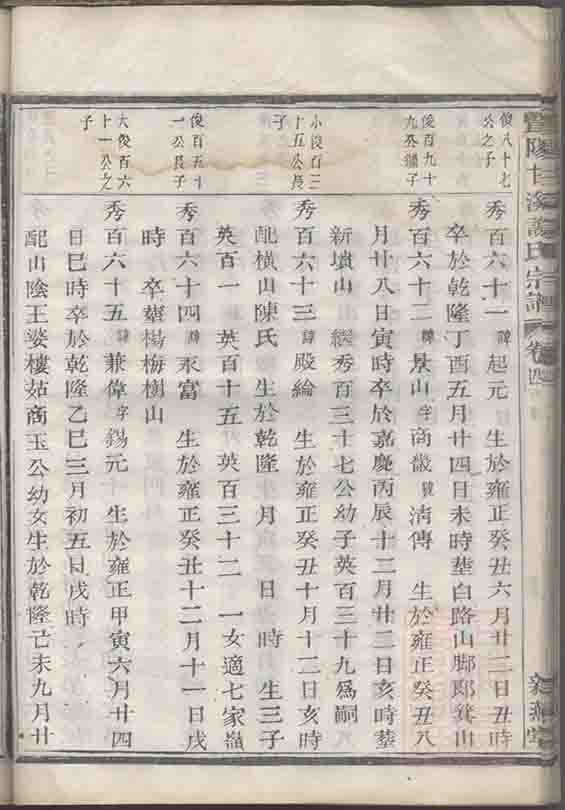 暨陽十溪謝氏宗譜 卷四
俊八十七
公之子
秀百六十一 諱 起元 生於雍正癸丑六月廿二日丑時
卒於乾隆丁酉五月廿四日未時塟白路山脚郎蓑山
俊百九十
九公繼子
秀百六十二 諱 景山 字 商巖 號 淸傳 生於雍正癸丑八
月廿八日寅時卒於嘉慶丙辰十二月廿二日亥時塟
新墳山 繼秀百三十七公幼子英百三十九爲嗣
小俊百三
十五公長
子
秀百六十三 諱 殿綸 生於雍正癸丑十月十二日亥時
配橫山陳氏 生於乾隆 年 月 日 時 生三子
英百一 英百十五 英百三十二 一女適七家嶺
俊百五十
一公長子
秀百六十四 諱 永富 生於雍正癸丑十二月十一日戌
時 卒塟楊梅樹山
大俊百六
十一公之
子
秀百六十五 諱 兼偉 字 錫元 生於雍正甲寅六月廿四
日巳時卒於乾隆乙巳三月初五日戌時
配山陰王婆樓姑商玉公幼女生於乾隆己未九月廿